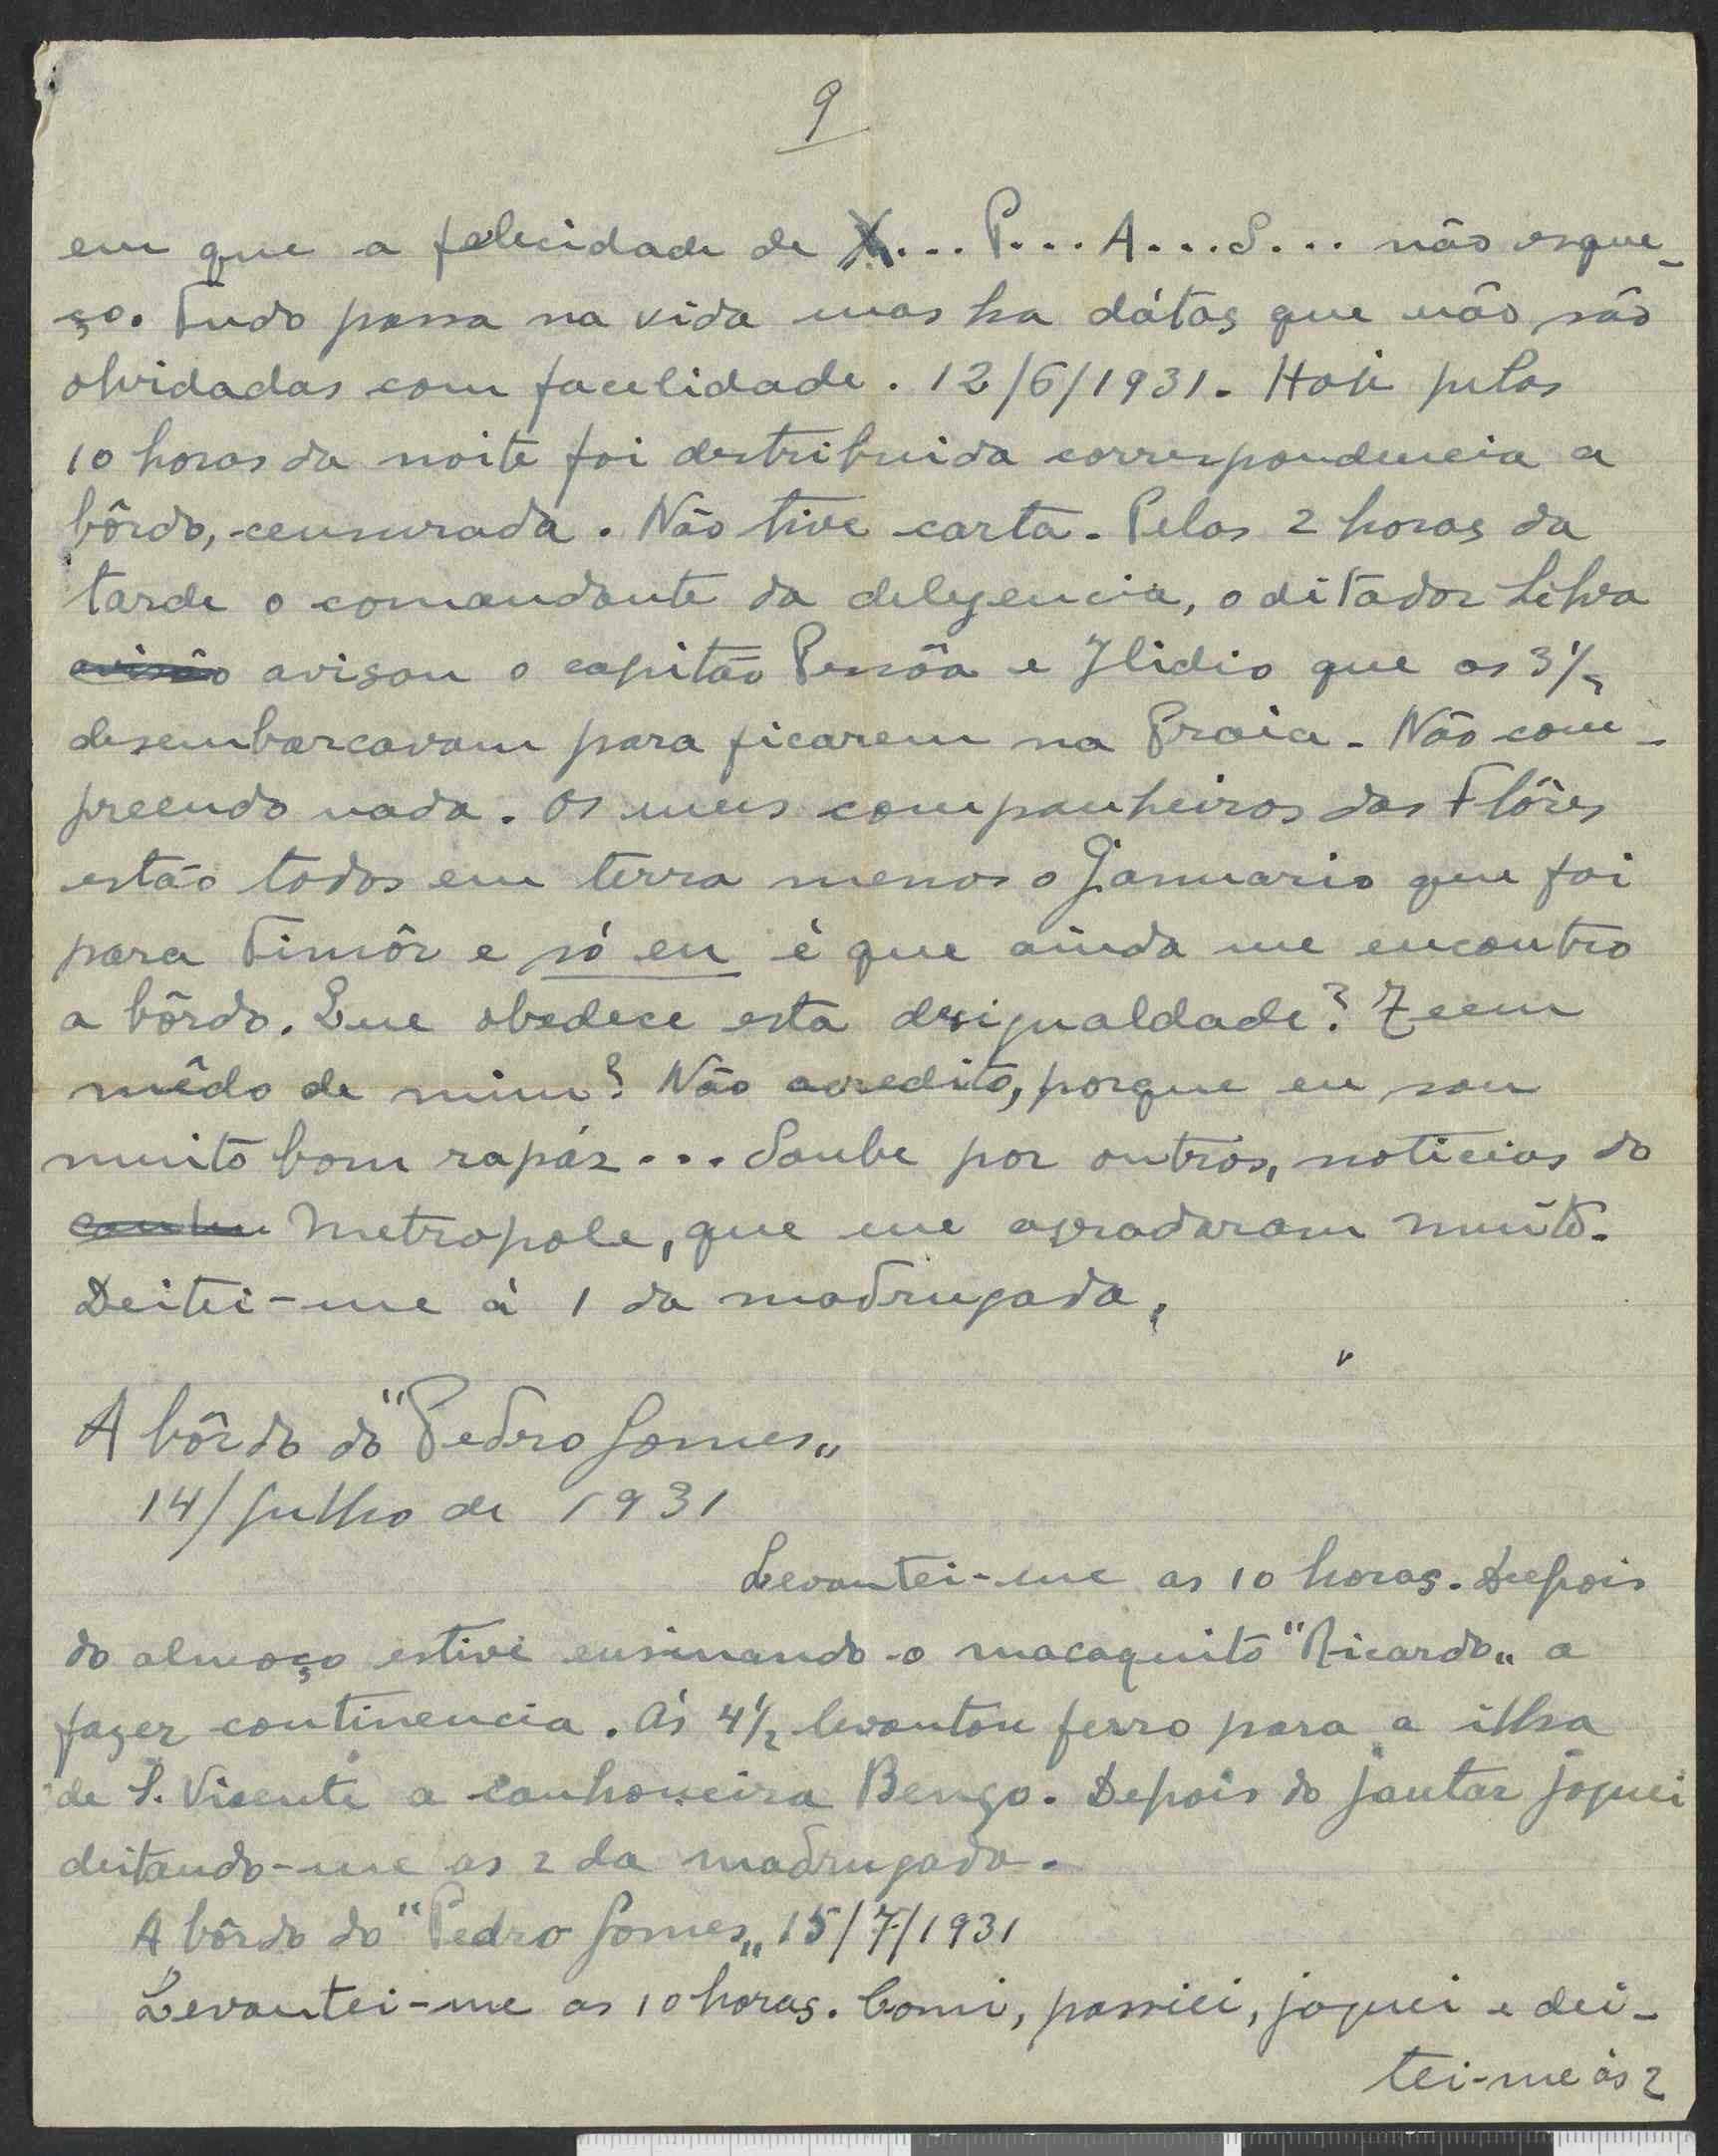 9
em que a felecidade de X... P... A... S... não esque-
ço. Tudo passa na vida mas ha dátas que não são
olvidadas com facelidade. 12/6/1931. Hoje pelas
10 horas da noite foi destribuida correspondencia a
bôrdo, censurada. Não tive carta. Pelas 2 horas da
tarde o comandante da delegencia, o ditador Silva
avisão avisou o capitão Pessôa e Ilidio que as 3½
desembarcavam para ficarem na Praia. Não com-
preendo nada. Os meus companheiros das Flôres
estão todos em terra menos o Januario que foi
para Timôr e só eu é que ainda me encontro
a bôrdo. Que obedece esta desigualdade? Teem
mêdo de mim? Não acredito, porque eu sou
muito bom rapáz... Soube por outros, noticias do
Metropole, que me agradaram muito.
Deitei-me á 1 da madrugada.
A bôrdo do "Pedro Gomes„
14/Julho de 1931
Levantei-me as 10 horas. Depois
do almoço estive ensinando o macaquito "Ricardo„ a
fazer continencia. Ás 4½ levantou ferro para a ilha
de S. Vicente a canhoneira Bengo. Depois do jantar joguei
deitando-me as 2 da madrugada.
A bôrdo do "Pedro Gomes„ 15/7/1931
Levantei-me as 10 horas. Comi, passiei, joguei e dei-
tei-me ás 2